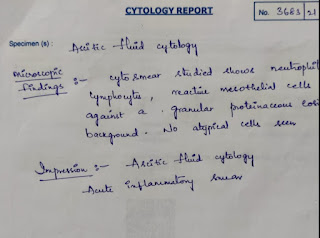 CYTOLOGY REPORT
No. 3683/21
Specimen (s) : Ascitic fluid cytology
Microscopic findings :- cytosmear studied shows neutrophils
lymphocytes, reactive mesothelial cells
against a granular proteinaceous
background. No atypical cells seen
Impression :- Ascitic fluid cytology
Acute inflammatory smear